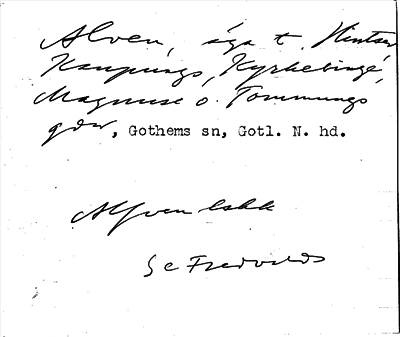 Alven, äga t. Hintser
Kaupungs, Kyrkebinge,
Magnuse o. Tommungs
gdr, Gothems sn, Gotl. N. hd.
Alfven
Se Fredvalds